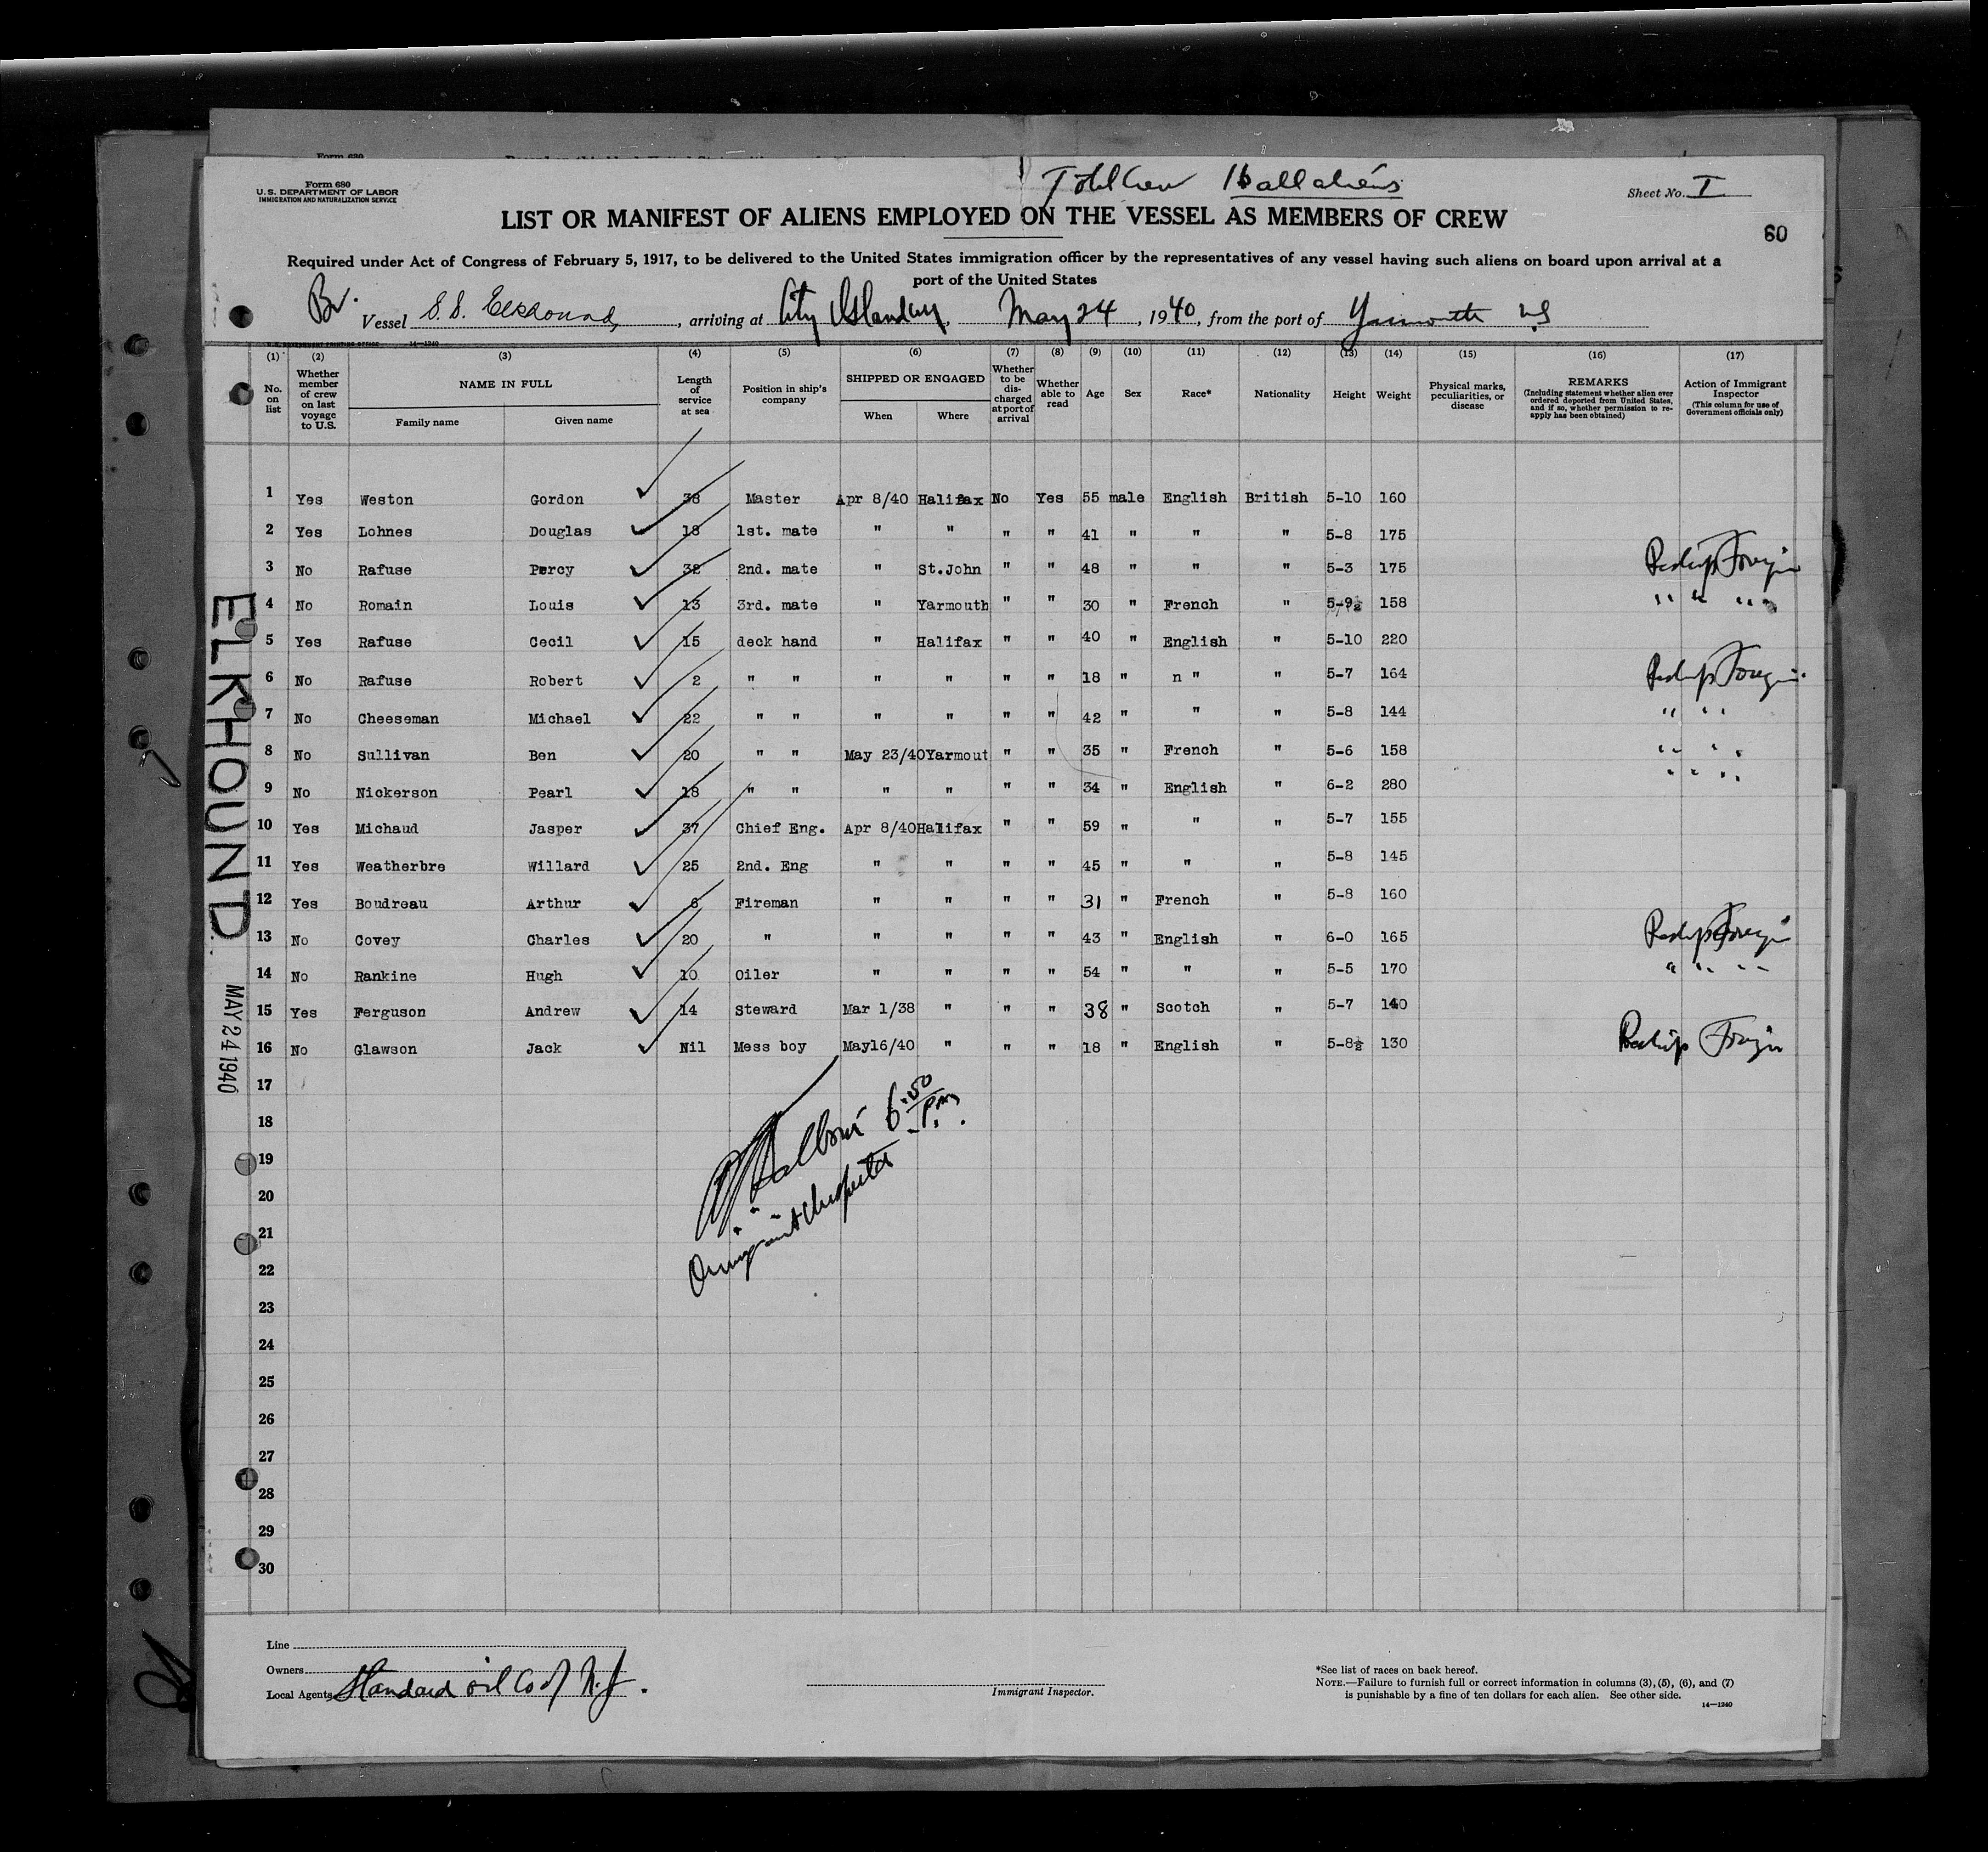 Form 680
U.S. DEPARTMENT OF LABOR
IMMIGRATION AND NATURALIZATION SERVICE
Total Crew 16 all aliens
Sheet No. I
LIST OR MANIFEST OF ALIENS EMPLOYED ON THE VESSEL AS MEMBERS OF CREW
60
Required under Act of Congress of February 5, 1917, to be delivered to the United States immigration officer by the representatives of any vessel having such aliens on board upon arrival at a
port of the United States
Br. Vessel S.S. Elkhound, arriving at City Island NY, May 24, 1940, from the port of Yarmouth NS
(1) (2) (3) (4) (5) (6) (7) (8) (9) (10) (11) (12) (13) (14) (15) (16) (17)
No. on list
Whether member of crew on last voyage to U.S.
NAME IN FULL
Family name
Given name
Length of service at sea
Position in ship's company
SHIPPED OR ENGAGED
When
Where
Whether to be discharged at port of arrival
Whether able to read
Age
Sex
Race*
Nationality
Height
Weight
Physical marks, peculiarities, or disease
REMARKS
(Including statement whether alien ever ordered deported from United States, and if so, whether permission to reapply has been obtained)
Action of Immigrant Inspector
(This column for use of Government officials only)
1 Yes Weston Gordon 38 Master Apr 8/40 Halifax No Yes 55 male English British 5-10 160
2 Yes Lohnes Douglas 18 1st. mate " " " " 41 " " " 5-8 175
3 No Rafuse Percy 32 2nd. mate " St.John " " 48 " " " 5-3 175 Reship Foreign
4 No Romain Louis 13 3rd. mate " Yarmouth " " 30 " French " 5-9½ 158 " " " "
5 Yes Rafuse Cecil 15 deck hand " Halifax " " 40 " English " 5-10 220
6 No Rafuse Robert 2 " " " " " " 18 " n " " 5-7 164 Reship Foreign
7 No Cheeseman Michael 22 " " " " " " 42 " " " 5-8 144 " " "
8 No Sullivan Ben 20 " " May 23/40 Yarmout " " 35 " French " 5-6 158 " " "
9 No Nickerson Pearl 18 " " " " " " 34 " English " 6-2 280 " " " "
10 Yes Michaud Jasper 37 Chief Eng. Apr 8/40 Halifax " " 59 " " " 5-7 155
11 Yes Weatherbre Willard 25 2nd. Eng " " " " 45 " " " 5-8 145
12 Yes Boudreau Arthur 6 Fireman " " " " 31 " French " 5-8 160
13 No Covey Charles 20 " " " " " 43 " English " 6-0 165 Reship Foreign
14 No Rankine Hugh 10 Oiler " " " " 54 " " " 5-5 170 " " " "
15 Yes Ferguson Andrew 14 Steward Mar 1/38 " " " 38 " Scotch " 5-7 140
16 No Glawson Jack Nil Mess boy May16/40 " " " 18 " English " 5-8½ 130 Reship Foreign
17
18
19
20
21
22
23
24
25
26
27
28
29
30
ELKHOUND
MAY 24 1940
6:50 P.M.
Immigrant Inspector
Line
Owners
Local Agents Standard Oil Co of N.J.
Immigrant Inspector.
*See list of races on back hereof.
NOTE.—Failure to furnish full or correct information in columns (3), (5), (6), and (7)
is punishable by a fine of ten dollars for each alien. See other side.
14—1240